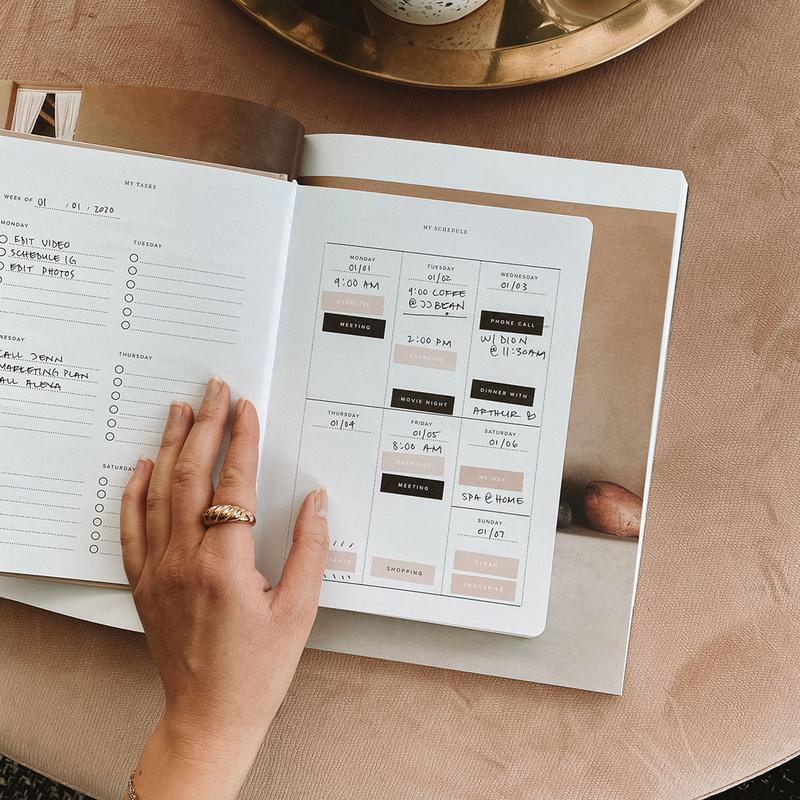 MY TASKS
WEEK OF 01 / 01 / 2020
MONDAY
EDIT VIDEO
SCHEDULE IG
EDIT PHOTOS
TUESDAY
CALL JENN
MARKETING PLAN
ALEXA
THURSDAY
SATURDAY
MY SCHEDULE
MONDAY
01/01
9:00 AM
EXERCISE
MEETING
TUESDAY
01/02
9:00 COFFE
@ JJ BEAN
2:00 PM
EXERCISE
MOVIE NIGHT
WEDNESDAY
01/03
PHONE CALL
W/ DION
@ 11:30AM
DINNER WITH
ARTHUR ♡
THURSDAY
01/04
FRIDAY
01/05
8:00 AM
EXERCISE
MEETING
SHOPPING
SATURDAY
01/06
ME DAY
SPA @ HOME
SUNDAY
01/07
CLEAN
GROCERIES